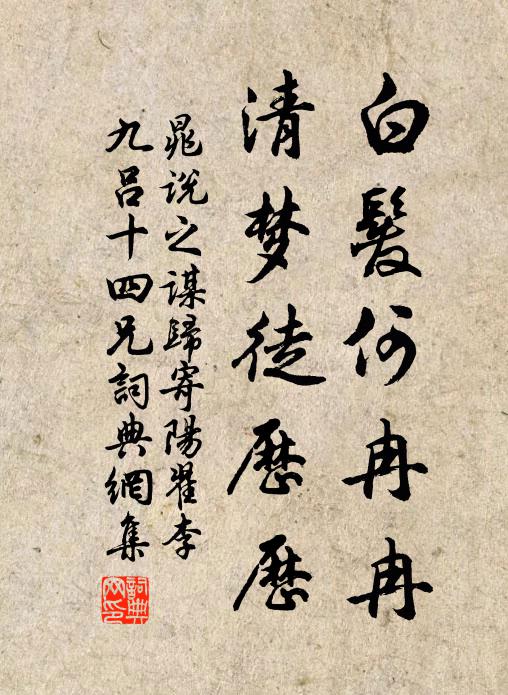 白髮何冉冉
清梦徒歷歷
晁說之謀歸寄陽翟李
九吕十四兄詞典網集
詞典
网印